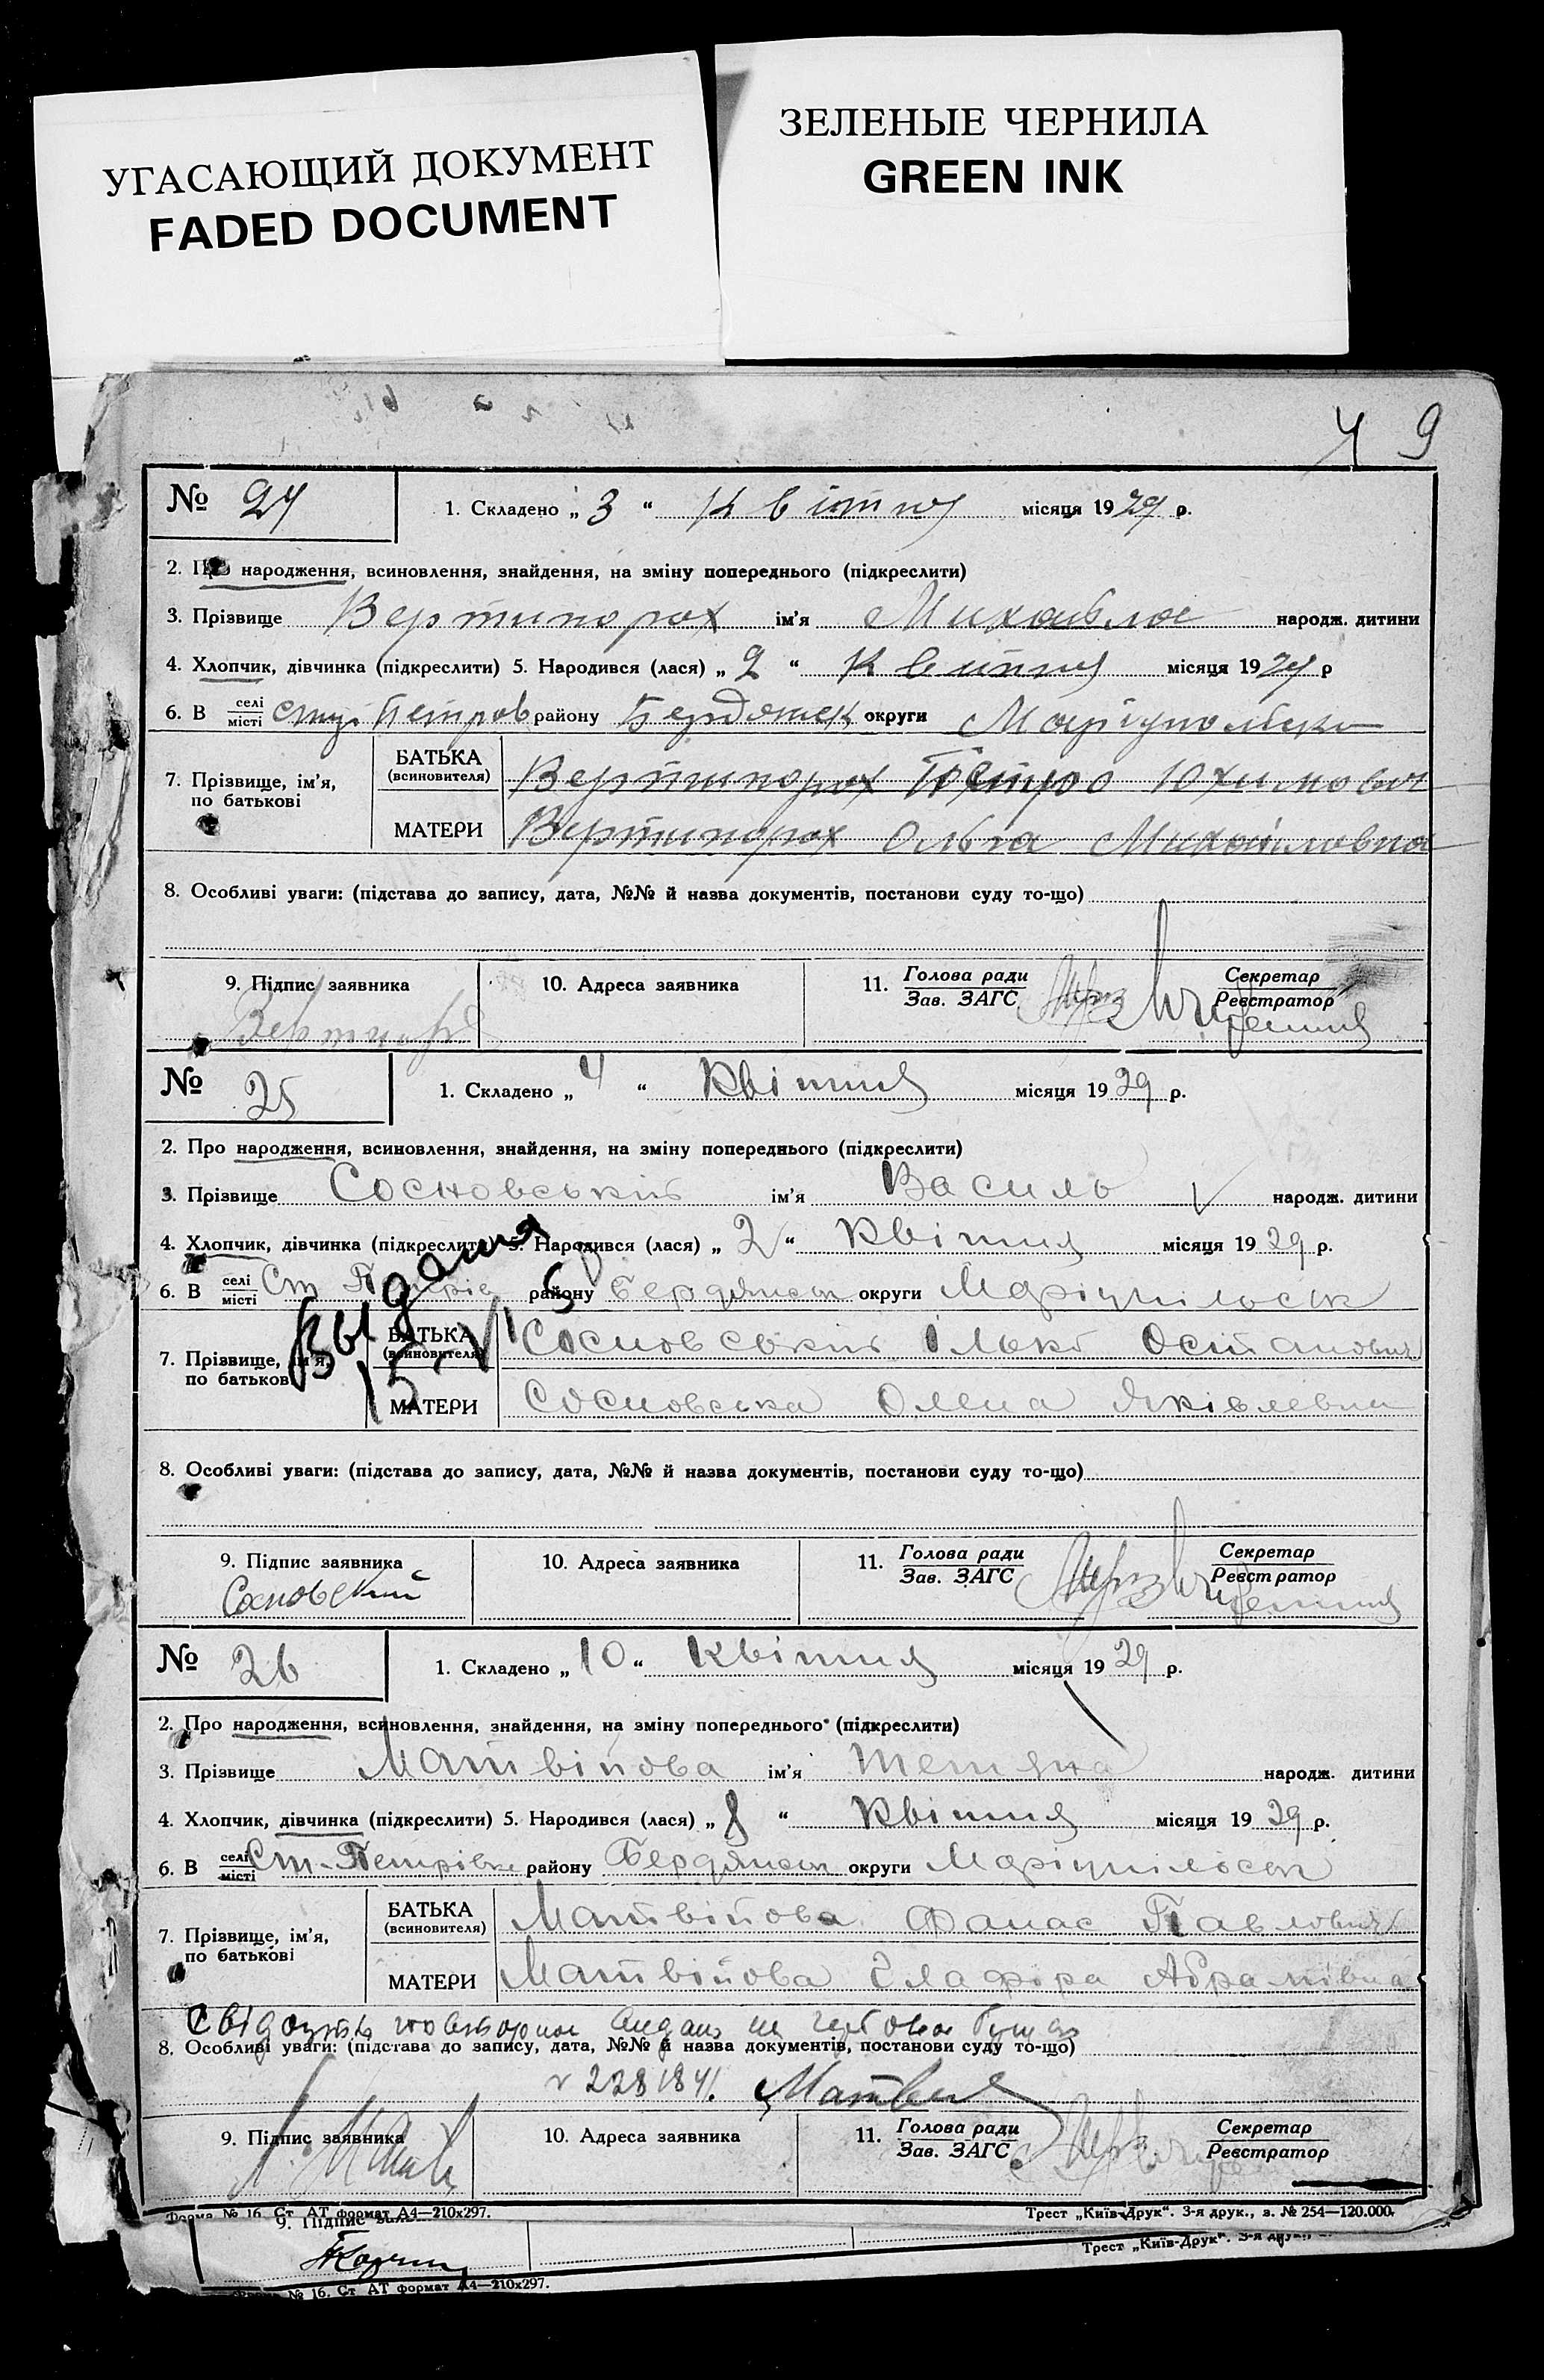 УГАСАЮЩИЙ ДОКУМЕНТ
FADED DOCUMENT
ЗЕЛЕНЫЕ ЧЕРНИЛА
GREEN INK
9
№ 24
1. Складено „ 3 “ Квітня місяця 1929 р.
2. Про народження, всиновлення, знайдення, на зміну попереднього (підкреслити)
3. Прізвище Вертипорох ім'я Михайло народж. дитини
4. Хлопчик, дівчинка (підкреслити) 5. Народився (лася) „ 2 “ Квітня місяця 1929 р
6. В селі місті Петров району Бердянськ округи
7. Прізвище, ім'я, по батькові
БАТЬКА (всиновителя) Вертипорох Петро Юхимович
МАТЕРИ Вертипорох Ольга Михайловна
8. Особливі уваги: (підстава до запису, дата, №№ й назва документів, постанови суду то-що)
9. Підпис заявника
10. Адреса заявника
11. Голова ради Зав. ЗАГС
Секретар Реєстратор
№ 25
1. Складено „ 4 “ Квітня місяця 1929 р.
2. Про народження, всиновлення, знайдення, на зміну попереднього (підкреслити)
3. Прізвище Сосновський ім'я Василь народж. дитини
4. Хлопчик, дівчинка (підкреслити) 5. Народився (лася) „ 2 “ Квітня місяця 1929 р.
6. В селі місті Ст Петрів району Бердянськ округи Маріупільськ
7. Прізвище, ім'я, по батькові
БАТЬКА (всиновителя) Сосновський Ілько Остапович
МАТЕРИ Сосновська Олена Яківлевна
8. Особливі уваги: (підстава до запису, дата, №№ й назва документів, постанови суду то-що)
9. Підпис заявника
Сосновский
10. Адреса заявника
11. Голова ради Зав. ЗАГС
Секретар Реєстратор
№ 26
1. Складено „ 10 “ Квітня місяця 1929 р.
2. Про народження, всиновлення, знайдення, на зміну попереднього (підкреслити)
3. Прізвище Матвійова ім'я Тетяна народж. дитини
4. Хлопчик, дівчинка (підкреслити) 5. Народився (лася) „ 8 “ Квітня місяця 1929 р.
6. В селі місті Ст-Петрівка району Бердянськ округи Маріупільськ
7. Прізвище, ім'я, по батькові
БАТЬКА (всиновителя) Матвійова Фанас Павлович
МАТЕРИ Матвійова Глафіра Абрамівна
8. Особливі уваги: (підстава до запису, дата, №№ й назва документів, постанови суду то-що)
9. Підпис заявника
10. Адреса заявника
11. Голова ради Зав. ЗАГС
Секретар Реєстратор
Форма № 16. Ст. АТ формат А4—210х297.
Трест „Київ-Друк“. 3-я друк., з. № 254—120.000.
9. Підпис
Трест „Київ-Друк“. 3-я друк.
Форма № 16. Ст АТ формат А4—210х297.